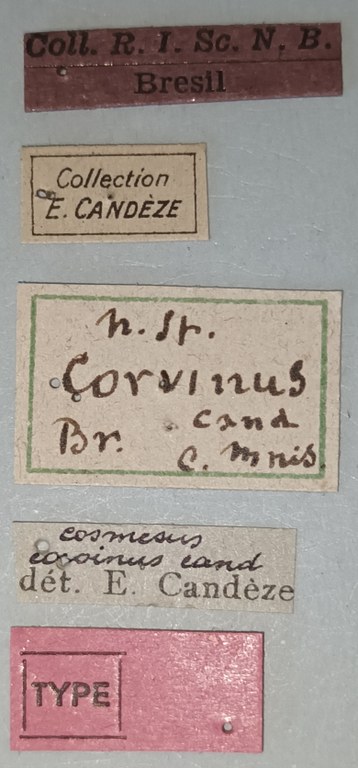 Coll. R. I. Sc. N. B.
Bresil
Collection
E. CANDÈZE
n. sp.
Corvinus
Br. Cand
C. Mnis.
cosmesus
corvinus cand
dét. E. Candèze
TYPE